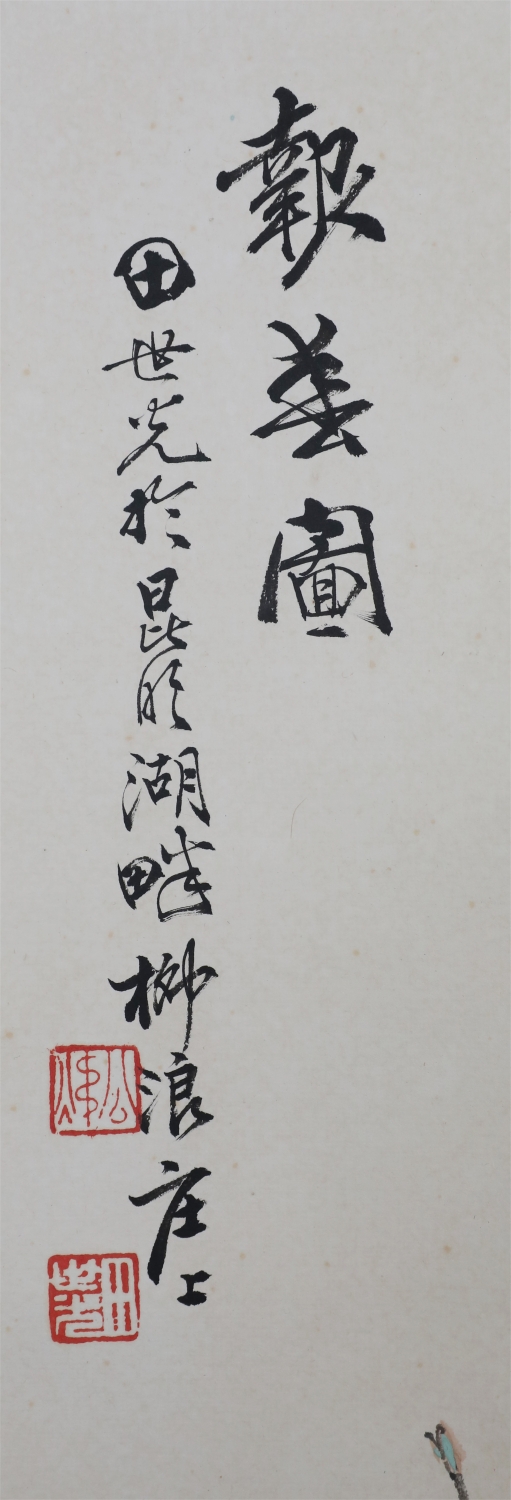 報春圖
田世光於昆明湖畔柳浪庄上
公煒
田世光